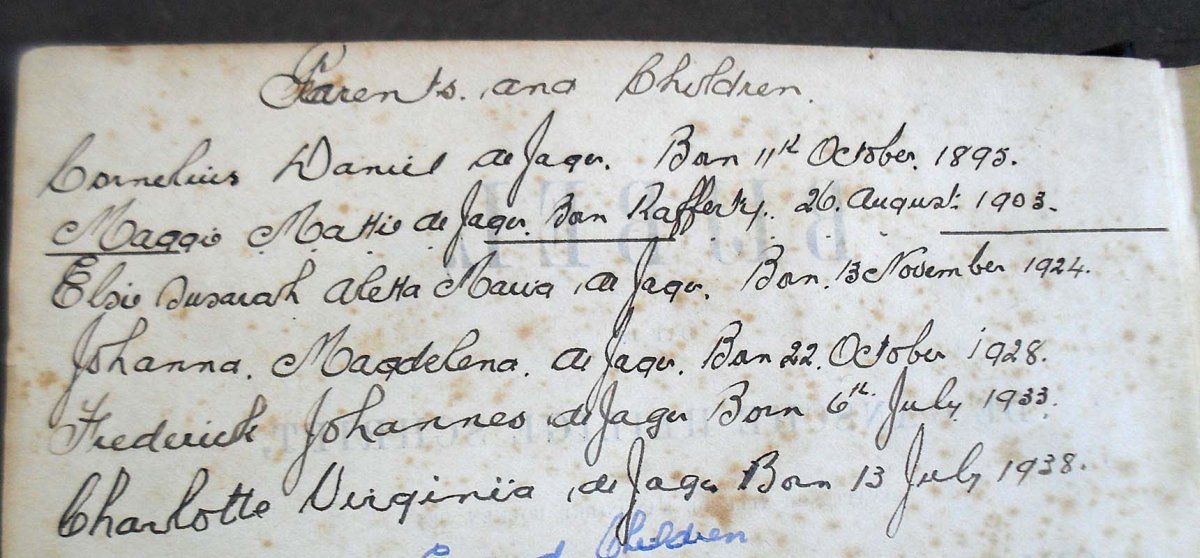 Parents. and Children.
Cornelius Daniel de Jager. Born 11th October. 1895.
Maggie Mattie de Jager. Born Rafferty. 26. August. 1903.
Elsie Susarah Aletta Maria de Jager. Born. 13 November 1924.
Johanna. Magdelena. de Jager. Born 22. October 1928.
Frederick Johannes de Jager Born 6th. July. 1933.
Charlotte Virginïa de Jager Born 13 July 1938.
Children